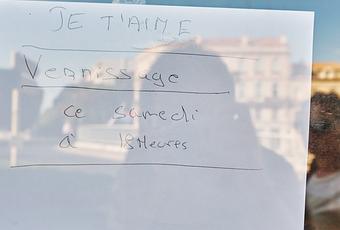 JE T'AIME
Vernissage
ce samedi
à 18Heures